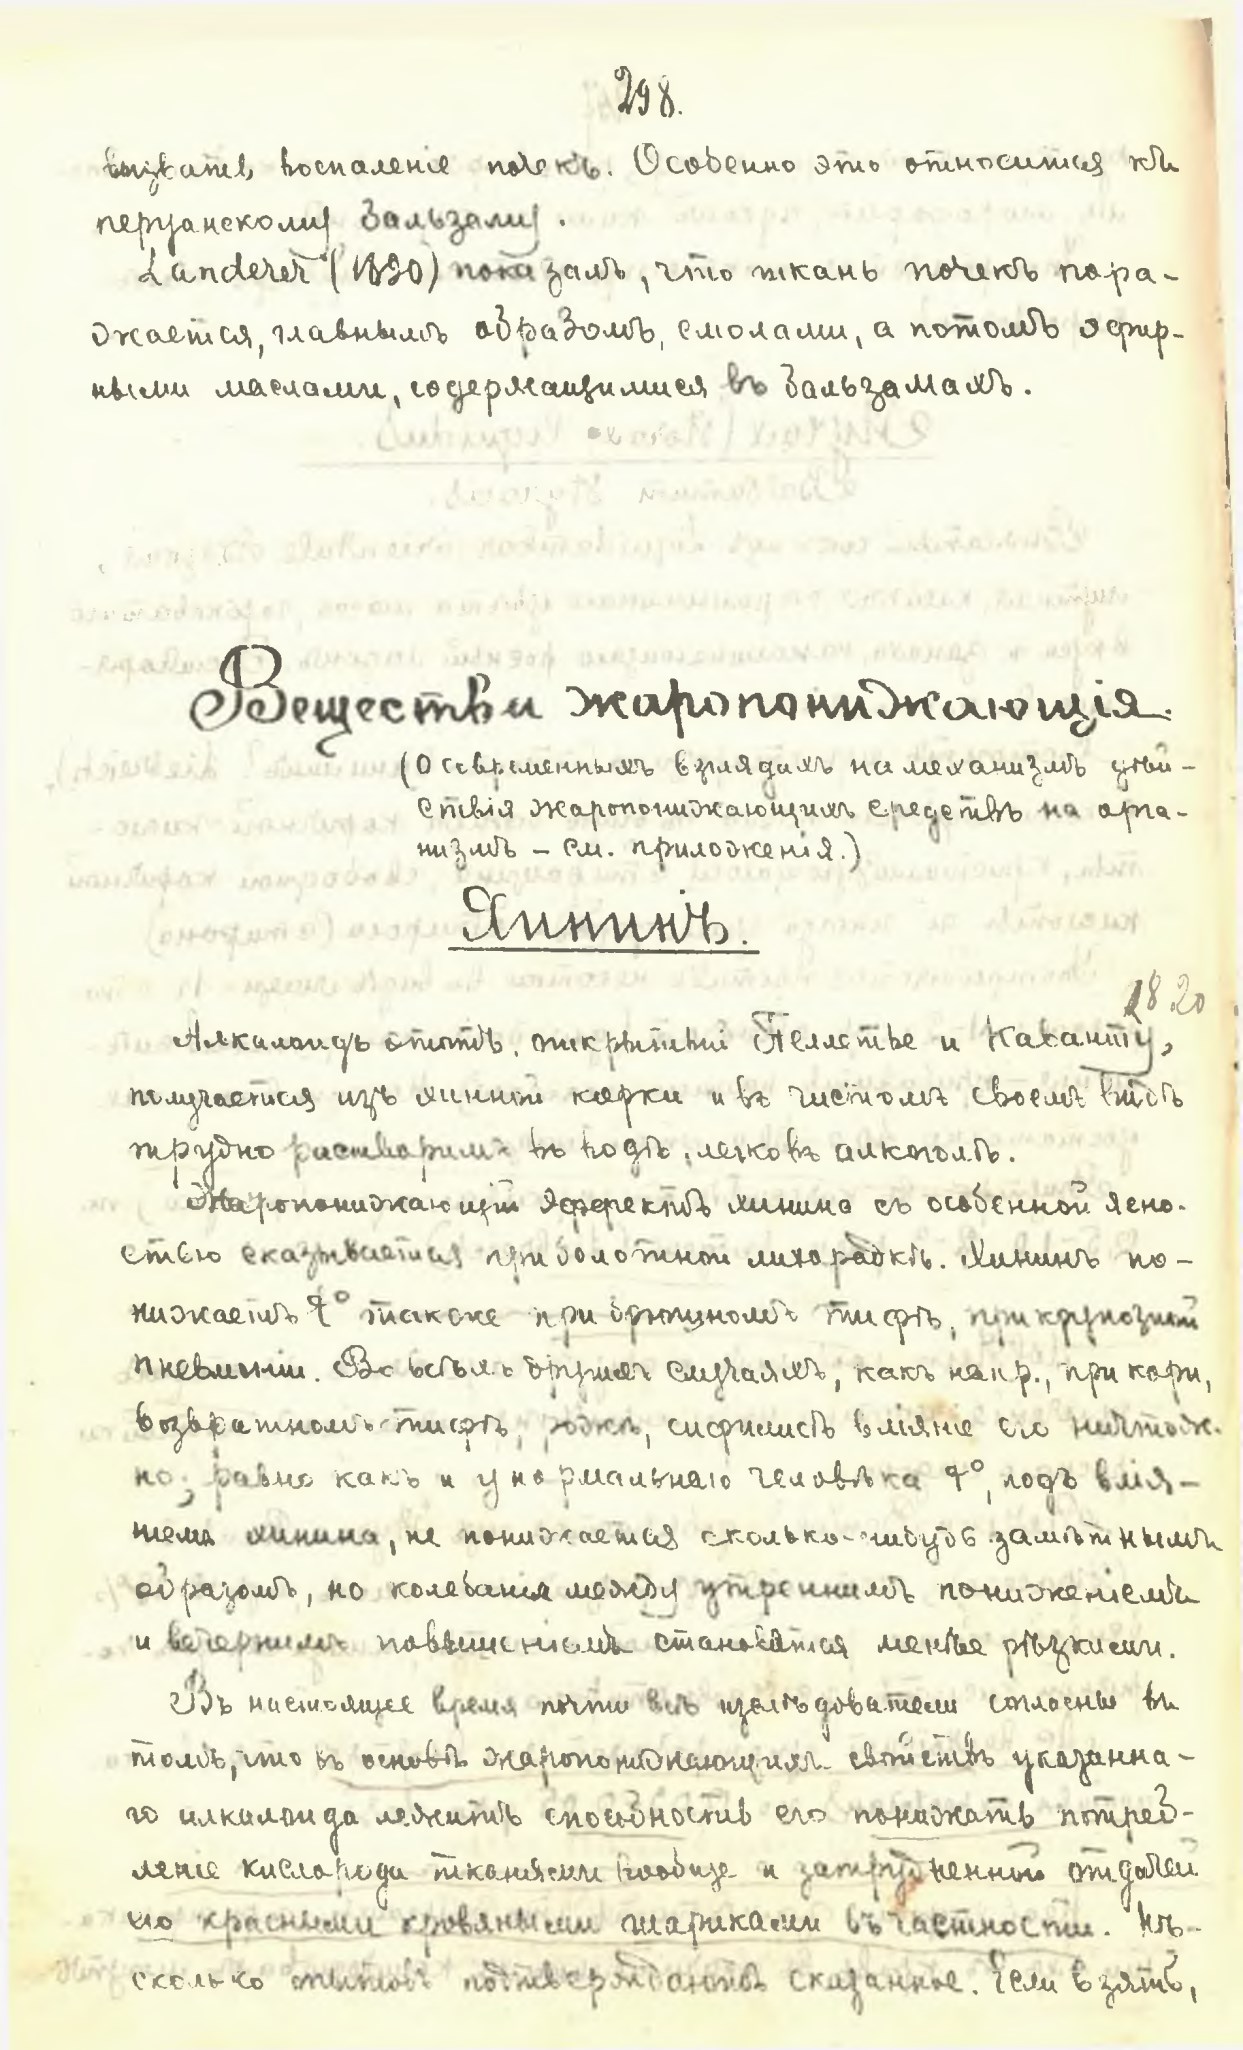 298.
вызвать воспаленіе почекъ. Особенно это относится къ
перуанскому бальзаму.
Landerer (1890) показалъ, что ткань почекъ пора-
жается, главнымъ образомъ, смолами, а потомъ эфир-
ными маслами, содержащимися въ бальзамахъ.
Вещества жаропонижающія.
(О современныхъ взглядахъ на механизмъ дѣй-
ствія жаропонижающихъ средствъ на орга-
низмъ – см. приложенія.)
Хининъ.
1820
Алкалоидъ этотъ, открытый Пеллетье и Каванту,
получается изъ хинной корки и въ чистомъ своемъ видѣ
трудно растворимъ въ водѣ, легко въ алкоголѣ.
Жаропонижающій эффектъ хинина съ особенной ясно-
стью сказывается при болотной лихорадкѣ. Хининъ по-
нижаетъ t° также при брюшномъ тифѣ, при крупозной
пневмоніи. Во всѣхъ другихъ случаяхъ, какъ напр., при кори,
возвратномъ тифѣ, рожѣ, сифилисѣ вліяніе его ничтож-
но, равно какъ и у нормальнаго человѣка t°, подъ влія-
ніемъ хинина, не понижается сколько-нибудь замѣтнымъ
образомъ, но колебанія между утреннимъ пониженіемъ
и вечернимъ повышеніемъ становятся менѣе рѣзкими.
Въ настоящее время почти всѣ изслѣдователи согласны въ
томъ, что въ основѣ жаропонижающихъ свойствъ указанна-
го алкалоида лежитъ способность его понижать потреб-
леніе кислорода тканями вообще и затрудненной отдачей
его красными кровяными шариками въ частности. Нѣ-
сколько опытовъ подтверждаютъ сказанное. Если взять,